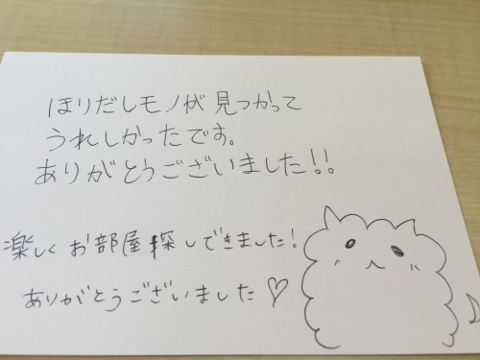 ほりだしモノが見つかって
うれしかったです。
ありがとうございました!!
楽しくお部屋探しできました!
ありがとうございました♡